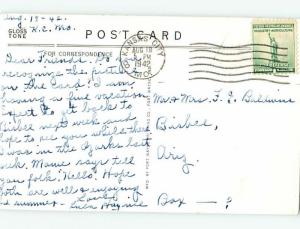 Aug. 18-42.
K.C. Mo.
GLOSS
TONE
POST CARD
FOR CORRESPONDENCE
KANSAS CITY
AUG 18
PM
1942
Dear Friends: Do
recognize the picture
on the Card. I am
having a fine vacation
expect to get back to
Bisbee next week and
hope to see you while there
I was in the Ozarks last
week. Mame says tell
you folk "Hello." Hope
both are well & enjoying
summer-
Mr & Mrs. T. J. Baldwin
Bisbee,
Ariz.
Box — ?